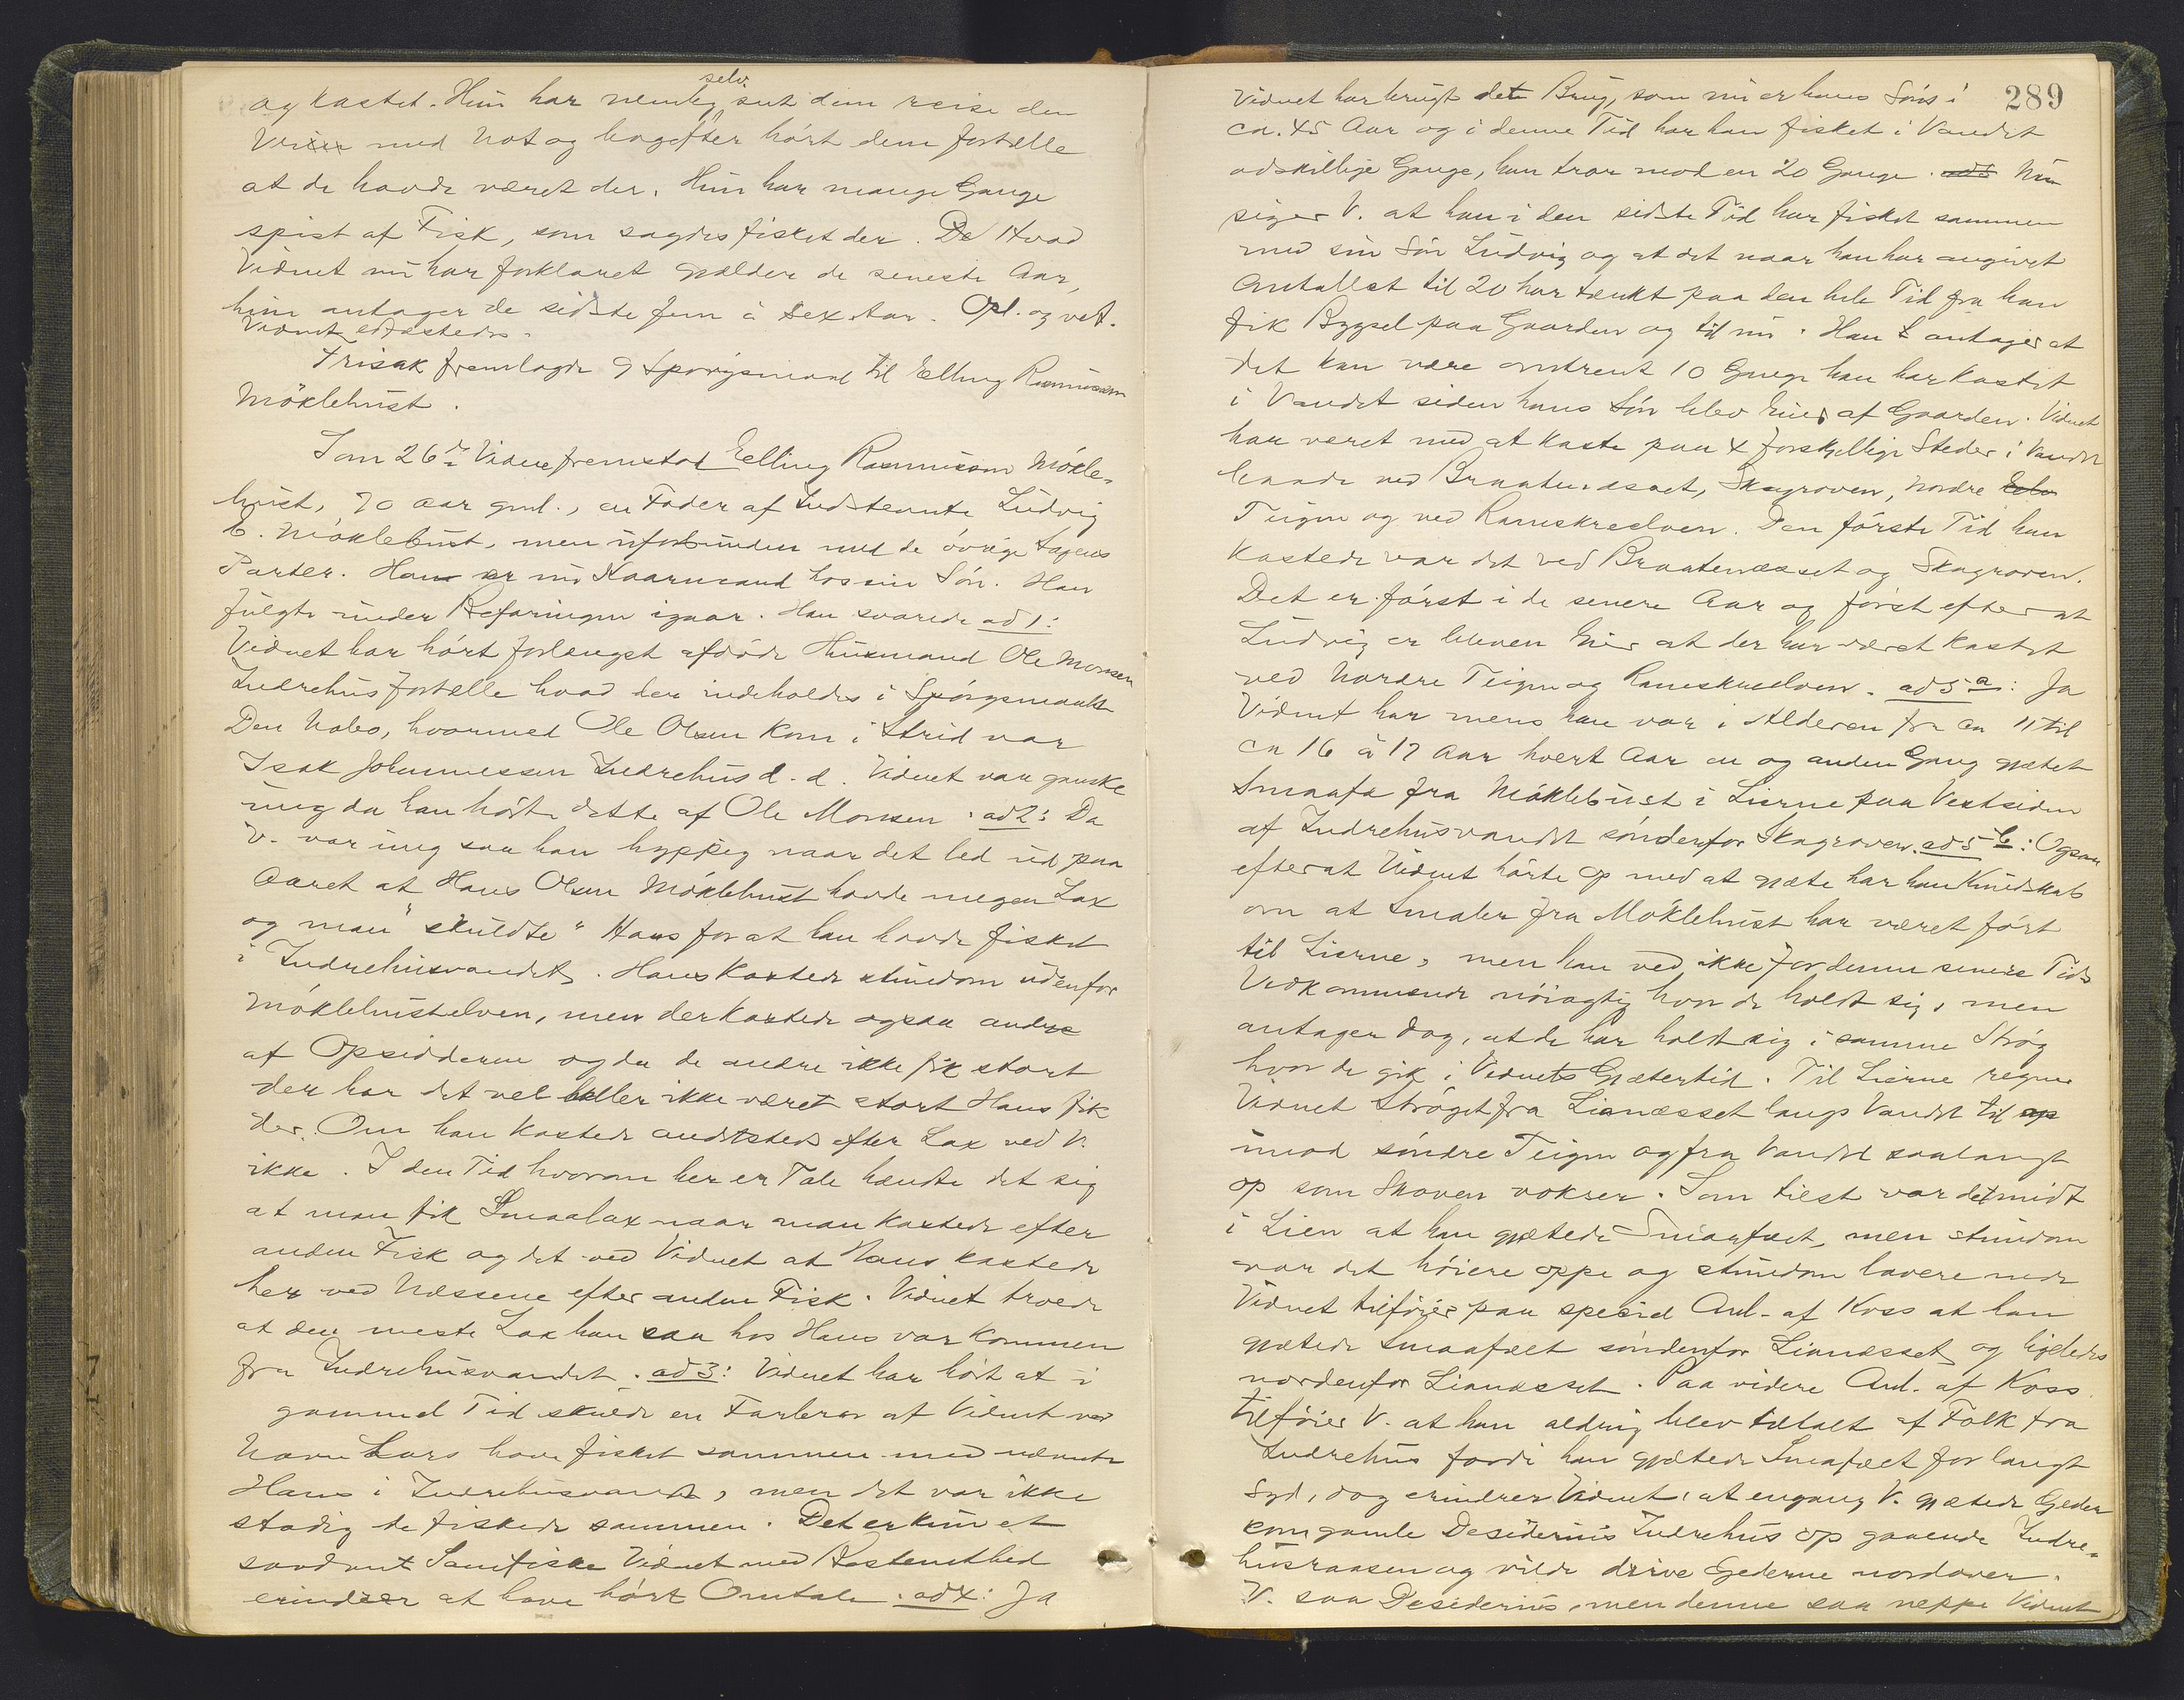 og kastet. Hun har nemlig selv set dem reise den
Veien med Not og bagefter hört dem fortælle
at de havde været der. Hun har mange Gange
spist af Fisk, som sagdes fisket der. De Hvad
Vidnet nu har forklaret gjælder de seneste Aar,
hun antager de sidste fem à sex Aar. Opl. og vet.
Vidnet edfæstedes.
Frisak fremlagde 9 Spörgsmaal til Elling Rasmussen
Möklebust.
Som 26de Vidne fremstod Elling Rasmussen Mökle-
bust, 70 aar gml., en Fader af Indstevnte Ludvig
E. Möklebust, men uforbunden med de övrige Sagens
Parter. Han er nu Kaarmand hos sin Sön. Han
fulgte under Befaringen igaar. Han svarede ad 1:
Vidnet har hört forlængst afdöde Husmand Ole Monsen
Indrehus fortælle hvad der indeholdes i Spörgsmaalet
Den Nabo, hvormed Ole Olsen kom i Strid var
Isak Johannessen Indrehus d. d. Vidnet var ganske
ung da han hörte dette af Ole Monsen. ad 2: Da
V. var ung saa han hyppig naar det led ud paa
Aaret at Hans Olsen Möklebust havde megen Lax
og man "skuldte" Hans for at han havde fisket
i Indrehusvandet. Hans kastede stundom udenfor
Möklebustelven, men der kastede ogsaa andre
af Opsidderne og da de andre ikke fik stort
der har det vel heller ikke været stort Hans fik
der. Om han kastede andetsteds efter Lax ved V.
ikke. I den Tid hvorom her er Tale hændte det sig
at man fik Smaalax naar man kastede efter
anden Fisk og det ved Vidnet at Hans kastede
her ved Næssene efter anden Fisk. Vidnet troede
at den meste Lax han saa hos Hans var kommen
fra Indrehusvandet. ad 3: Vidnet har hört at i
gammel Tid skulde en Farbror af Vidnet ved
Navn Lars have fisket sammen med nævnte
Hans i Indrehusvandet, men det var ikke
stadig de fiskede sammen. Det er kun et
saadant Samfiske Vidnet med Bestemthed
erindrer at have hört Omtale. ad 4: Ja
289
Vidnet har brugt det Brug, som nu er hans Söns i
ca. 45 Aar og i denne Tid har han fisket i Vandet
adskillige Gange, han tror mod en 20 Gange. Nu
siger V. at han i den sidste Tid har fisket sammen
med sin Sön Ludvig og at det naar han har angivet
Antallet til 20 har tænkt paa den hele Tid fra han
fik Bygsel paa Gaarden og til nu. Han antager at
det kan være omtrent 10 Gange han har kastet
i Vandet siden hans Sön blev Eier af Gaarden. Vidnet
har været med at kaste paa 4 forskjellige Steder i Vandet
baade ved Braatenæsset, Skagroven, Nordre
Teigen og ved Rameskreelven. Den förste Tid han
kastede var det ved Braatenæsset og Skagroven.
Det er först i de senere Aar og först efter at
Ludvig er bleven Eier at der har været kastet
ved Nordre Teigen og Rameskreelven. ad 5 a: Ja
Vidnet har mens han var i Alderen fra ca 11 til
ca 16 à 17 Aar hvert Aar en og anden Gang gjætet
Smaafæ fra Möklebust i Lierne paa Vestsiden
af Indrehusvandet söndenfor Skagroven. ad 5 b: Ogsaa
efterat Vidnet hörte op med at gjæte har han Kundskab
om at Smaler fra Möklebust har været fört
til Lierne, men han ved ikke for denne senere Tids
Vedkommende nöiagtig hvor de holdt sig, men
antager dog, at de har holdt sig i samme Strög
hvor de gik i Vidnets Gjætertid. Til Lierne regner
Vidnet Ströget fra Lianæsset langs Vandet til op
imod söndre Teigen og fra Vandet saalangt
op som Skoven vokser. Som tiest var det midt
i Lien at han gjætede Smaafæet, men stundom
var det höiere oppe og stundom lavere nede
Vidnet tilföier paa speciel Anl. af Koss at han
gjætede Smaafæet söndenfor Lianæsset og ligeledes
nordenfor Lianæsset. Paa videre Anl. af Koss
tilföier V. at han aldrig blev tiltalt af Folk fra
Indrehus fordi han gjætede Smaafæet for langt
Syd, dog erindrer Vidnet, at engang V. gjætede Geder
kom gamle Desiderius Indrehus op gaaende Indre-
husraasen og vilde drive Gederne nordover.
V. saa Desiderius, men denne saa neppe Vidnet